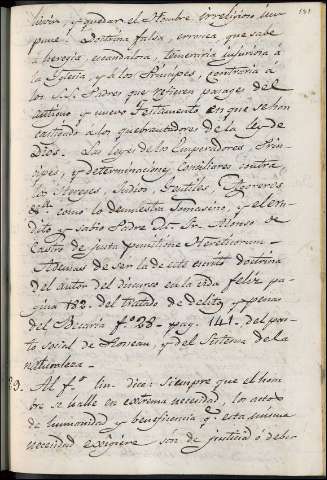 181
livin, y quedar el Hombre irreligioso im-
pune. Doctrina falsa, erronea, que sabe
à heregia, escandalosa, temeraria injuriosa à
la Iglesia, y à los Principes, contraria à
los S.S. Padres que refieren pasages del
antiguo y nuevo Testamento en que se han
castigado a los quebrantadores de la ley de
Dios. Las leyes de los Emperadores, Prin-
cipes, y determinaciones Conciliares contra
los Hereges, Judios, Gentiles
como lo demuestra Tomasino, y el eru-
dito y sabio Padre Fr. Alonso de
Castro de justa punitione Hereticorum.
Ademas de ser la de este escrito doctrina
del autor del discurso en la vida feliz pa-
gina 183. del tratado de delitos y penas
del Becaria fº 28. pag. 141. del pac-
to social de Roseau, y del Sistema de la
naturaleza.
Al fº lin. dice: Siempre que el hom-
bre se halle en extrema necesidad, los actos
de humanidad y beneficencia q.e esta misma
necesidad exigiere son de justicia ò deber